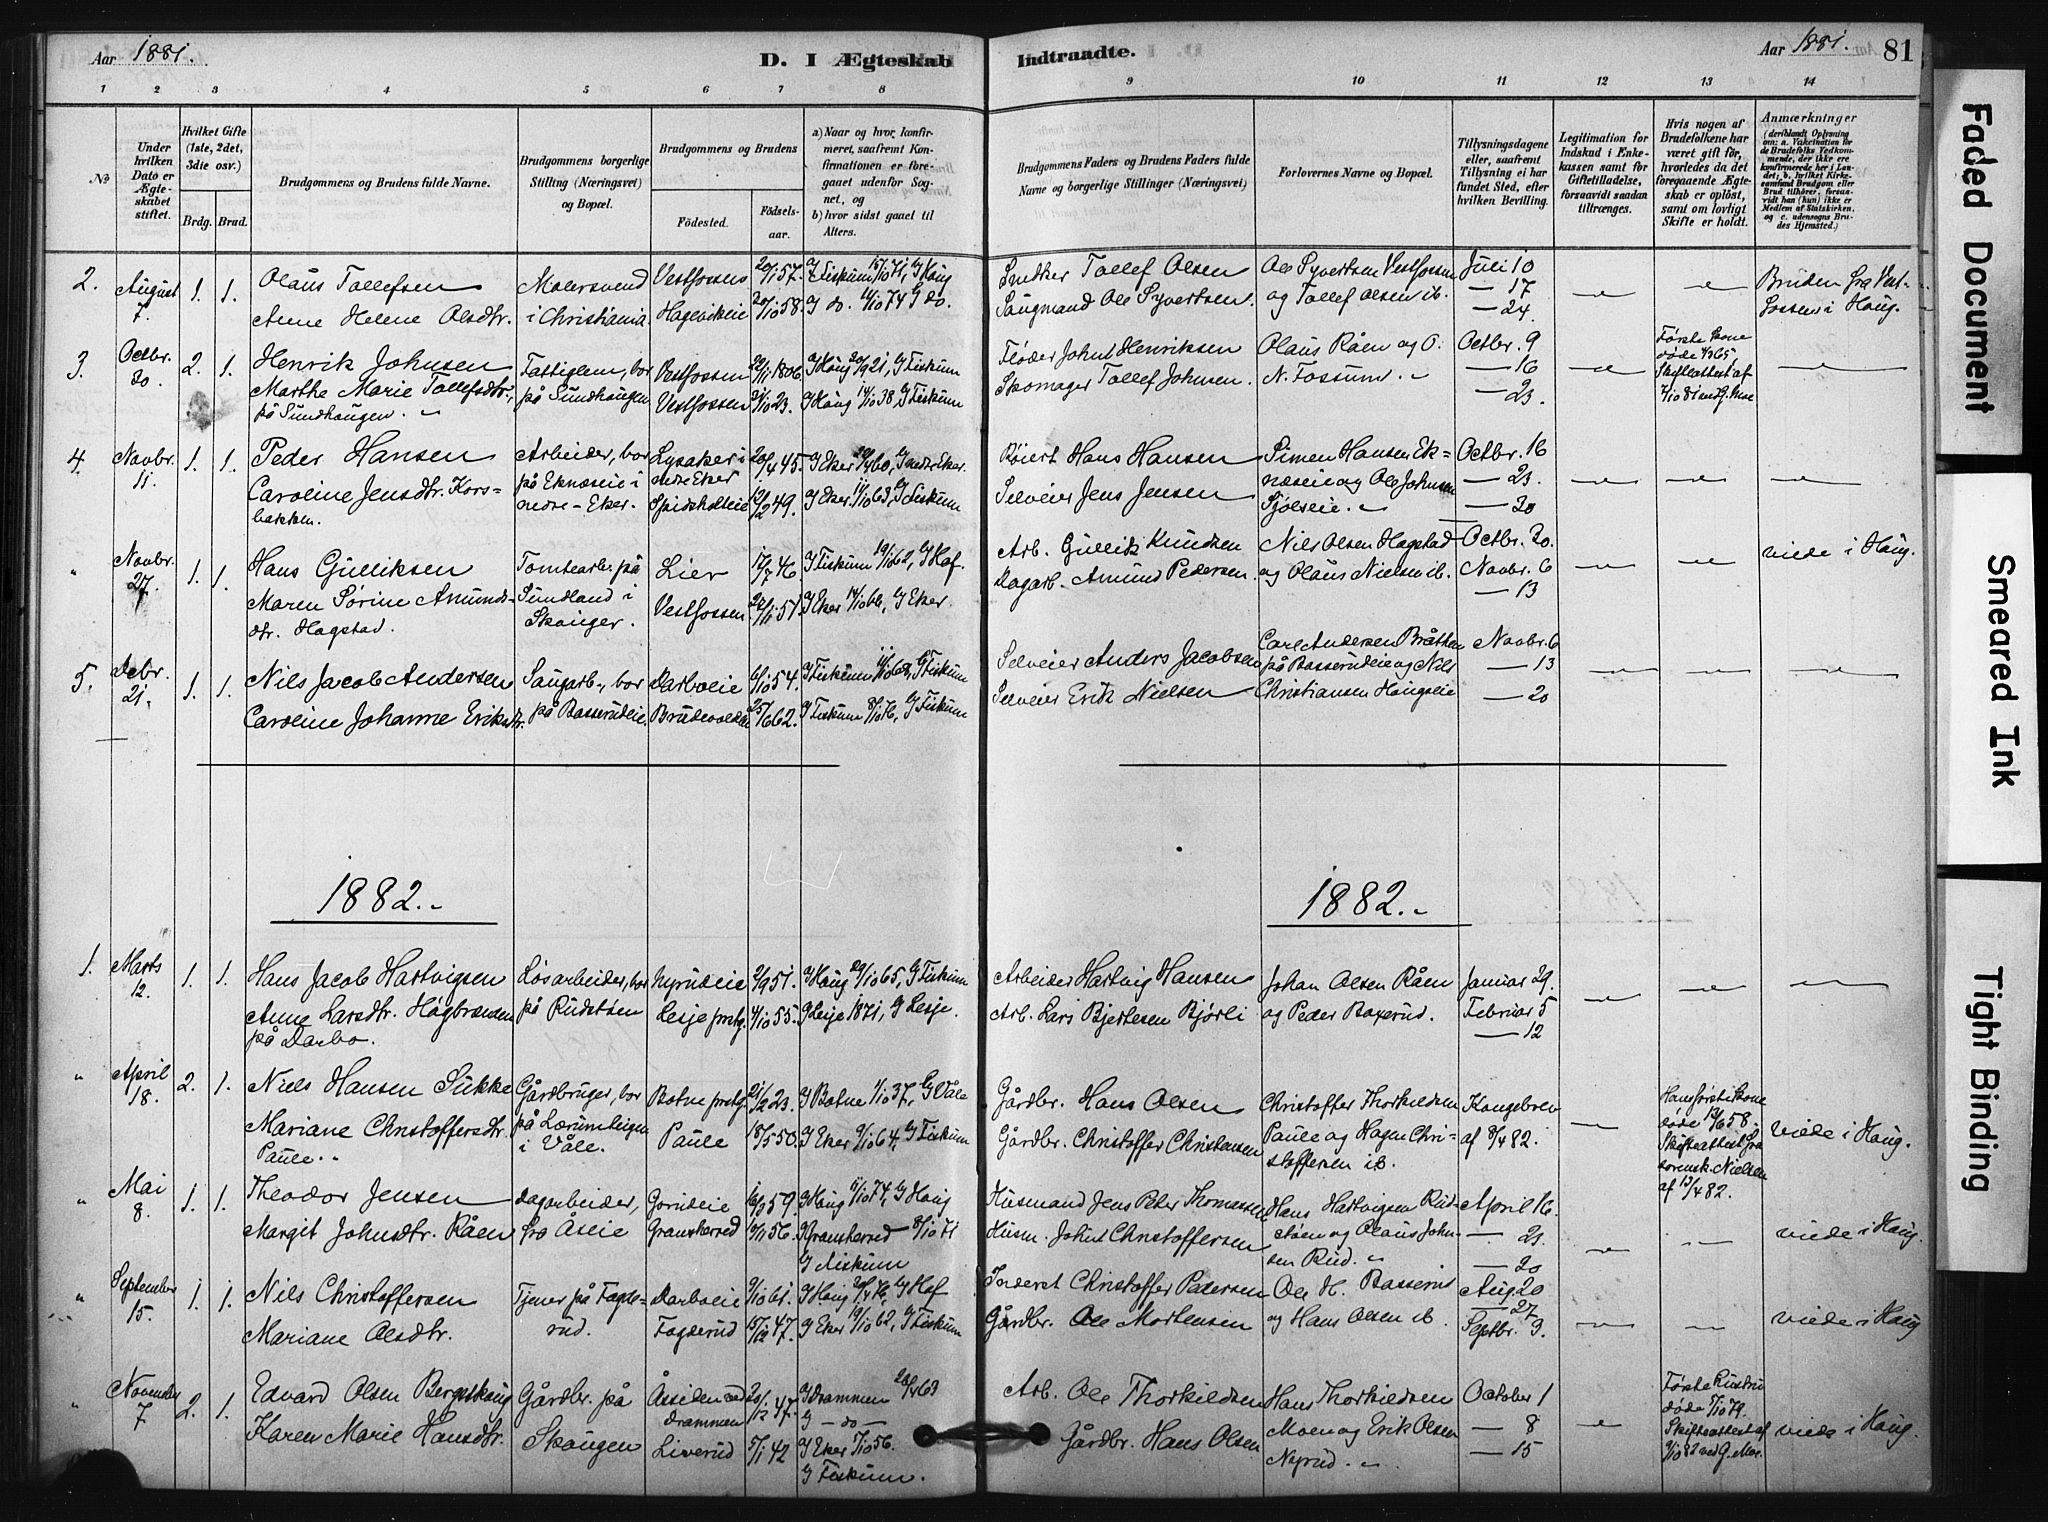 Aar 1881.
D. I Ægteskab
Indtraadte.
Aar 1881.
81
1 2 3 4 5 6 7 8
9 10 11 12 13 14
No
Under hvilken Dato er Ægteskabet stiftet.
Hvilket Gifte (1ste, 2det, 3die osv.)
Brdg. Brud.
Brudgommens og Brudens fulde Navne.
Brudgommens borgerlige Stilling (Næringsvei) og Bopæl.
Brudgommens og Brudens
Födested.
Födselsaar.
a) Naar og hvor konfirmeret, saafremt Konfirmationen er foregaaet udenfor Sognet, og
b) hvor sidst gaaet til Alters.
Brudgommens Faders og Brudens Faders fulde Navne og borgerlige Stillinger (Næringsvei)
Forlovernes Navne og Bopæl.
Tillysningsdagene eller, saafremt Tillysning ei har fundet Sted, efter hvilken Bevilling.
Legitimation for Indskud i Enkekassen samt for Giftetilladelse, forsaavidt saadan tiltrænges.
Hvis nogen af Brudefolkene har været gift för, hvorledes da det foregaaende Ægteskab er oplöst, samt om lovligt Skifte er holdt.
Anmærkninger
(deriblandt Oplysning om: a. Vakcination for de Brudefolks Vedkommende, der ikke ere konfirmerede her i Landet; b. hvilket Kirkesamfund Brudgom eller Brud tilhörer, forsaavidt han (hun) ikke er Medlem af Statskirken, og c. udensogns Brudes Hjemsted.)
2. August 7. 1. 1.
Olaus Tollefsen
Anne Helene Olsdtr.
Malersvend
i Christiania
Vestfossen
Hagevikeie
20/1 57.
20/10 58.
I Fiskum 15/10 71, I Haug
I do. 11/10 74 I do.
Snedker Tollef Olsen
Saugmand Ole Syvertsen
Ole Syvertsen Vestfossen
og Tollef Olsen ib.
Juli 10
— 17
— 24
Bruden fra Vest-
fossen i Haug.
3. Octbr. 30. 2. 1.
Henrik Johnsen
Marthe Marie Tollefsdtr.,
på Sundhaugen.
Fattiglem, bor
på Sundhaugen
Vestfossen
Vestfossen
22/11 1806.
31/10 23.
I Haug 20/9 21, I Fiskum
I Haug 14/10 38, I Fiskum
Fløder Johnt Henriksen
Skomager Tollef Johnsen
Olaus Råen og O.
N. Fossum
Octbr. 9
— 16
— 23.
Første Kone
døde 1/3 65,
Skifteattest af
7/10 81
4. Novbr. 11. 1. 1.
Peder Hansen
Caroline Jensdtr. Kors-
bakken.
Arbeider, bor
på Eknæseie i
nedre-Eker.
Lysaker i
nedre Eker
Spidsholteie
20/4 45.
12/2 49.
I Eker 29/4 60, I nedre Eker.
I Eker 11/10 63, I Fiskum
Røiert Hans Hansen
Selveier Jens Jensen
Simen Hansen Ek-
næseie og Ole Johnsen
Sjølseie
Octbr. 16
— 23.
— 30
" Novbr. 27. 1. 1.
Hans Gulliksen
Maren Sørine Amunds-
dtr. Hagstad.
Tomtearb. på
Sundland i
Skouger.
Lier
Vestfossen
17/7 46
22/11 51
I Fiskum 19/10 62, I Haf.
I Eker 14/10 66, I Eker.
Arb. Gullik Knudsen
Dagarb. Amund Pedersen
Nils Olsen Hagstad
og Olaus Nielsen ib.
Octbr. 30.
Novbr. 6
— 13
viede i Haug.
5. Debr. 21. 1. 1.
Nils Jacob Andersen
Caroline Johanne Eriksdtr.
Saugarb., bor
på Basserudeie
Darboeie
Brudevolden
6/10 54.
25/6 62.
I Fiskum 11/10 68, I Fiskum
I Fiskum 8/10 76, I Fiskum
Selveier Anders Jacobsen
Selveier Erik Nielsen
Carl Andersen Bråthen
på Basserudeie og Nils
Christiansen Haugeie
Novbr. 6
— 13
— 20
1882.
1882.
1. Marts 12. 1. 1.
Hans Jacob Hartvigsen
Anne Larsdtr. Høgbrenden
på Darbo.
Løsarbeider, bor
på Rudstøen
Nyrudeie
Lesje prstg.
2/9 51.
4/10 55.
I Haug 29/10 65, I Fiskum
I Lesje 1871, I Lesje.
Arbeider Hartvig Hansen
Arb. Lars Bjertesen Bjørli
Johan Olsen Råen
og Peder Baxerud.
Januar 29.
Februar 5
— 12
" April 18. 2. 1.
Niels Hansen Sukke
Mariane Christoffersdtr.
Paule.
Gårdbruger, bor
på Lærumteigen
i Våle.
Botne prstg.
Paule
21/2 23.
18/5 50.
I Botne 1/10 37, I Våle
I Eker 9/10 64, I Fiskum
Gårdbr. Hans Olsen
Gårdbr. Christoffer Christensen
Christoffer Thorkildsen
Paule og Hagen Chri-
stoffersen ib.
Kongebrev
af 8/4 82.
Hans første Kone
døde 13/6 58.
Skifteattest fra
Lorensk. Nielsen
af 13/4 82.
viede i Haug.
" Mai 8. 1. 1.
Theodor Jensen
Margit Johnsdtr. Råen
Dagarbeider,
fra Aseie
Gorudeie
Gransherred
16/9 59.
9/11 56.
I Haug 11/10 74, I Haug
I Gransherred 8/10 71
I Fiskum
Husmand Jens Peter Thomassen
Husm. Johnt Christoffersen
Hans Hartvigsen Rud-
støen og Olaus John-
sen Rud.
April 16.
— 23
— 30
viede i Haug.
" September 15. 1. 1.
Nils Christoffersen
Mariane Olsdtr.
Tjener på Fagde-
rud.
Darboeie
Fagderud
9/10 61.
15/12 47.
I Haug 20/4 76, I Haf
I Eker 19/10 62, I Fiskum
Inderst Christoffer Pedersen
Gårdbr. Ole Mortensen
Ole H. Basserud
og Hans Olsen ib.
Aug. 20
— 27
Septbr. 3.
viede i Haug
" November 7 2. 1.
Edvard Olsen Bergskaug
Karen Marie Hansdtr.
Gårdbr. på
Skaugen
Åssiden ved
Drammen
Liverud
20/12 47.
5/1 42
I Drammen 20/4 63
I — do —
I Eker 5/10 56.
I Fiskum.
Arb. Ole Thorkildsen
Gårdbr. Hans Olsen
Hans Thorkildsen
Moen og Erik Olsen
Nyrud.
October 1
— 8
— 15
Første Hustru
døde 7/10 79.
Skifteattest af
9/10 82 ved G. Moe.
viede i Haug.
Faded Document
Smeared Ink
Tight Binding